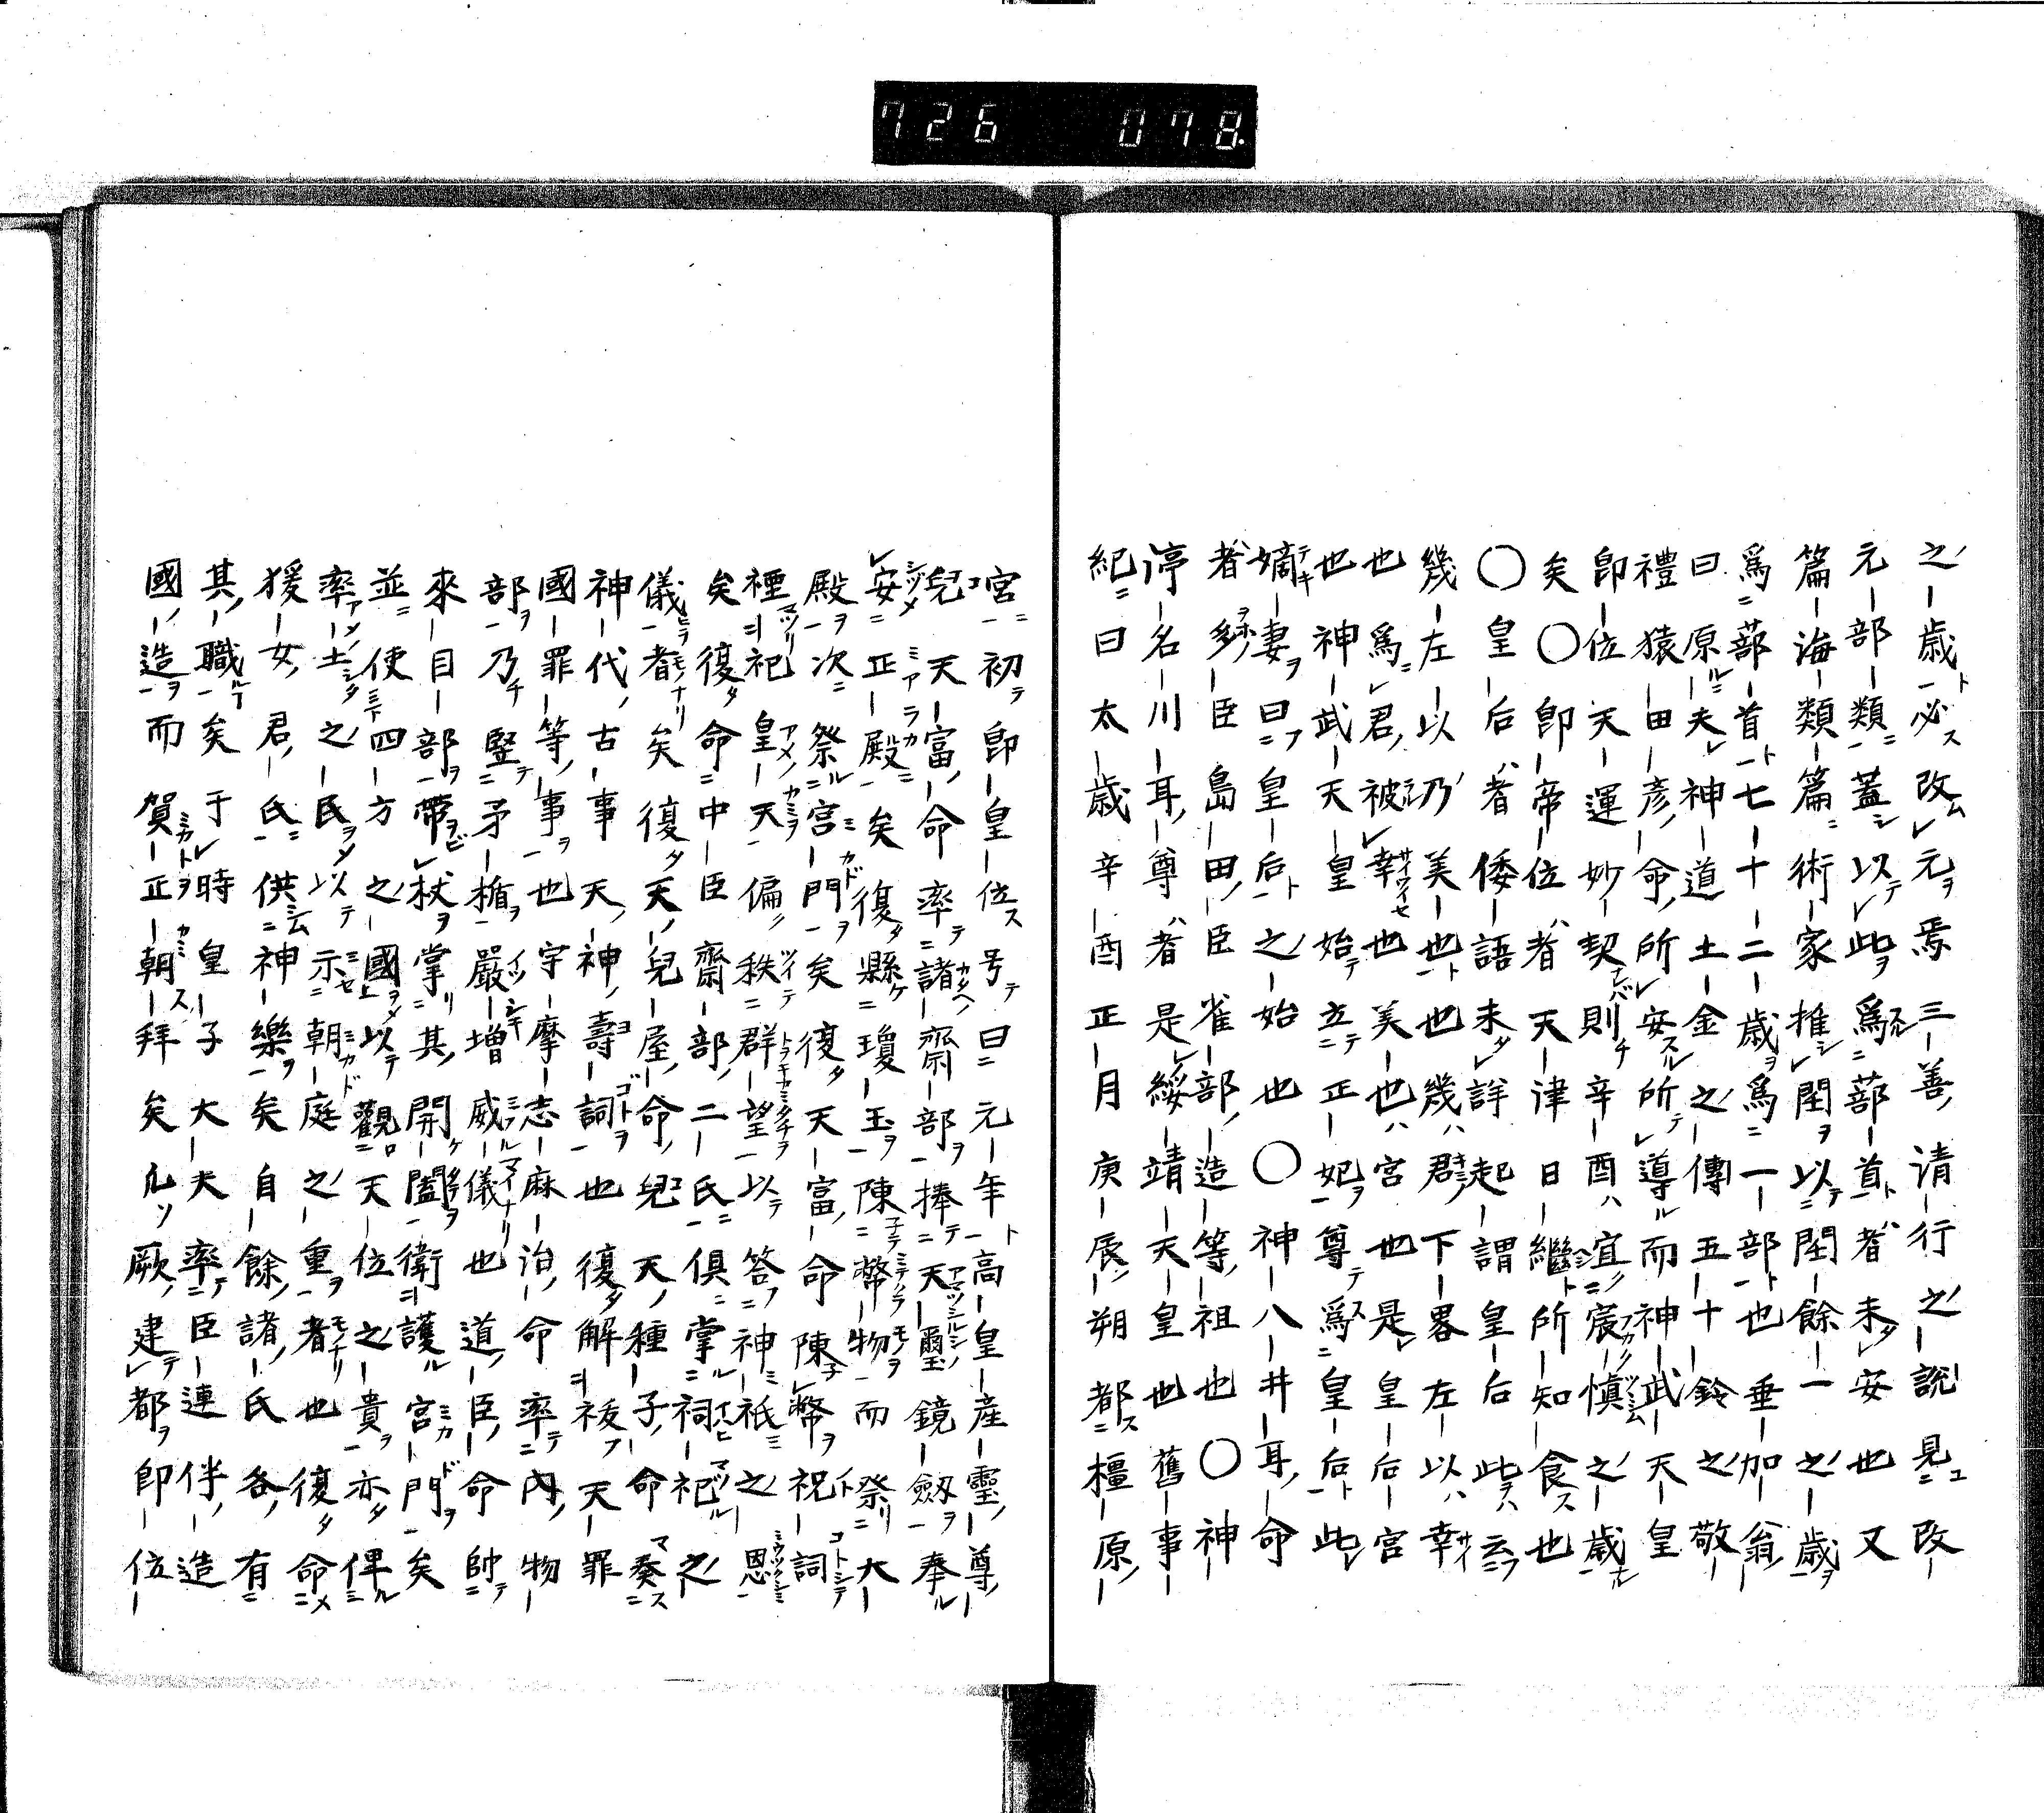 726 078
之歳必改元焉三善清行之説見改
元部類蓋以此爲蔀首者未安也又
篇海類篇術家推閏以閏餘一之歳
爲蔀首七十二歳爲一部也垂加翁
曰原夫神道土金之傳五十鈴之敬
禮猿田彦命所安所導而神武天皇
即位天運妙契則辛酉宜宸愼之歳
矣〇即帝位者天津日繼所知食也
〇皇后者倭語未詳起謂皇后此云
幾左以乃美也也幾君下畧左以幸
也爲君被幸也美也宮也是皇后宮
也神武天皇始立正妃尊爲皇后此
嫡妻曰皇后之始也〇神八井耳命
者多臣島田臣雀部造等祖也〇神
渟名川耳尊者是綏靖天皇也舊事
紀曰太歳辛酉正月庚辰朔都橿原
宮初即皇位号曰元年高皇産靈尊
兒天富命率諸齋部捧天璽鏡劔奉
安正殿矣復縣瓊玉陳幣物而祭大
殿次祭宮門矣復天富命陳幣祝詞
禋祀皇天偏秩群望以答神祇之恩
矣復命中臣齋部二氏俱掌祠祀之
儀者矣復天兒屋命兒天種子命奏
神代古事天神壽詞也復解祓天罪
國罪等事也宇摩志麻治命率内物
部乃竪矛楯嚴増威儀也道臣命帥
來目部帶杖掌其開闔衛護宮門矣
並使四方之國以觀天位之貴亦俾
率土之民以示朝庭之重者也復命
猨女君氏供神樂矣自餘諸氏各有
其職矣于時皇子大夫率臣連伴造
國造而賀正朝拜矣凢厥建都即位